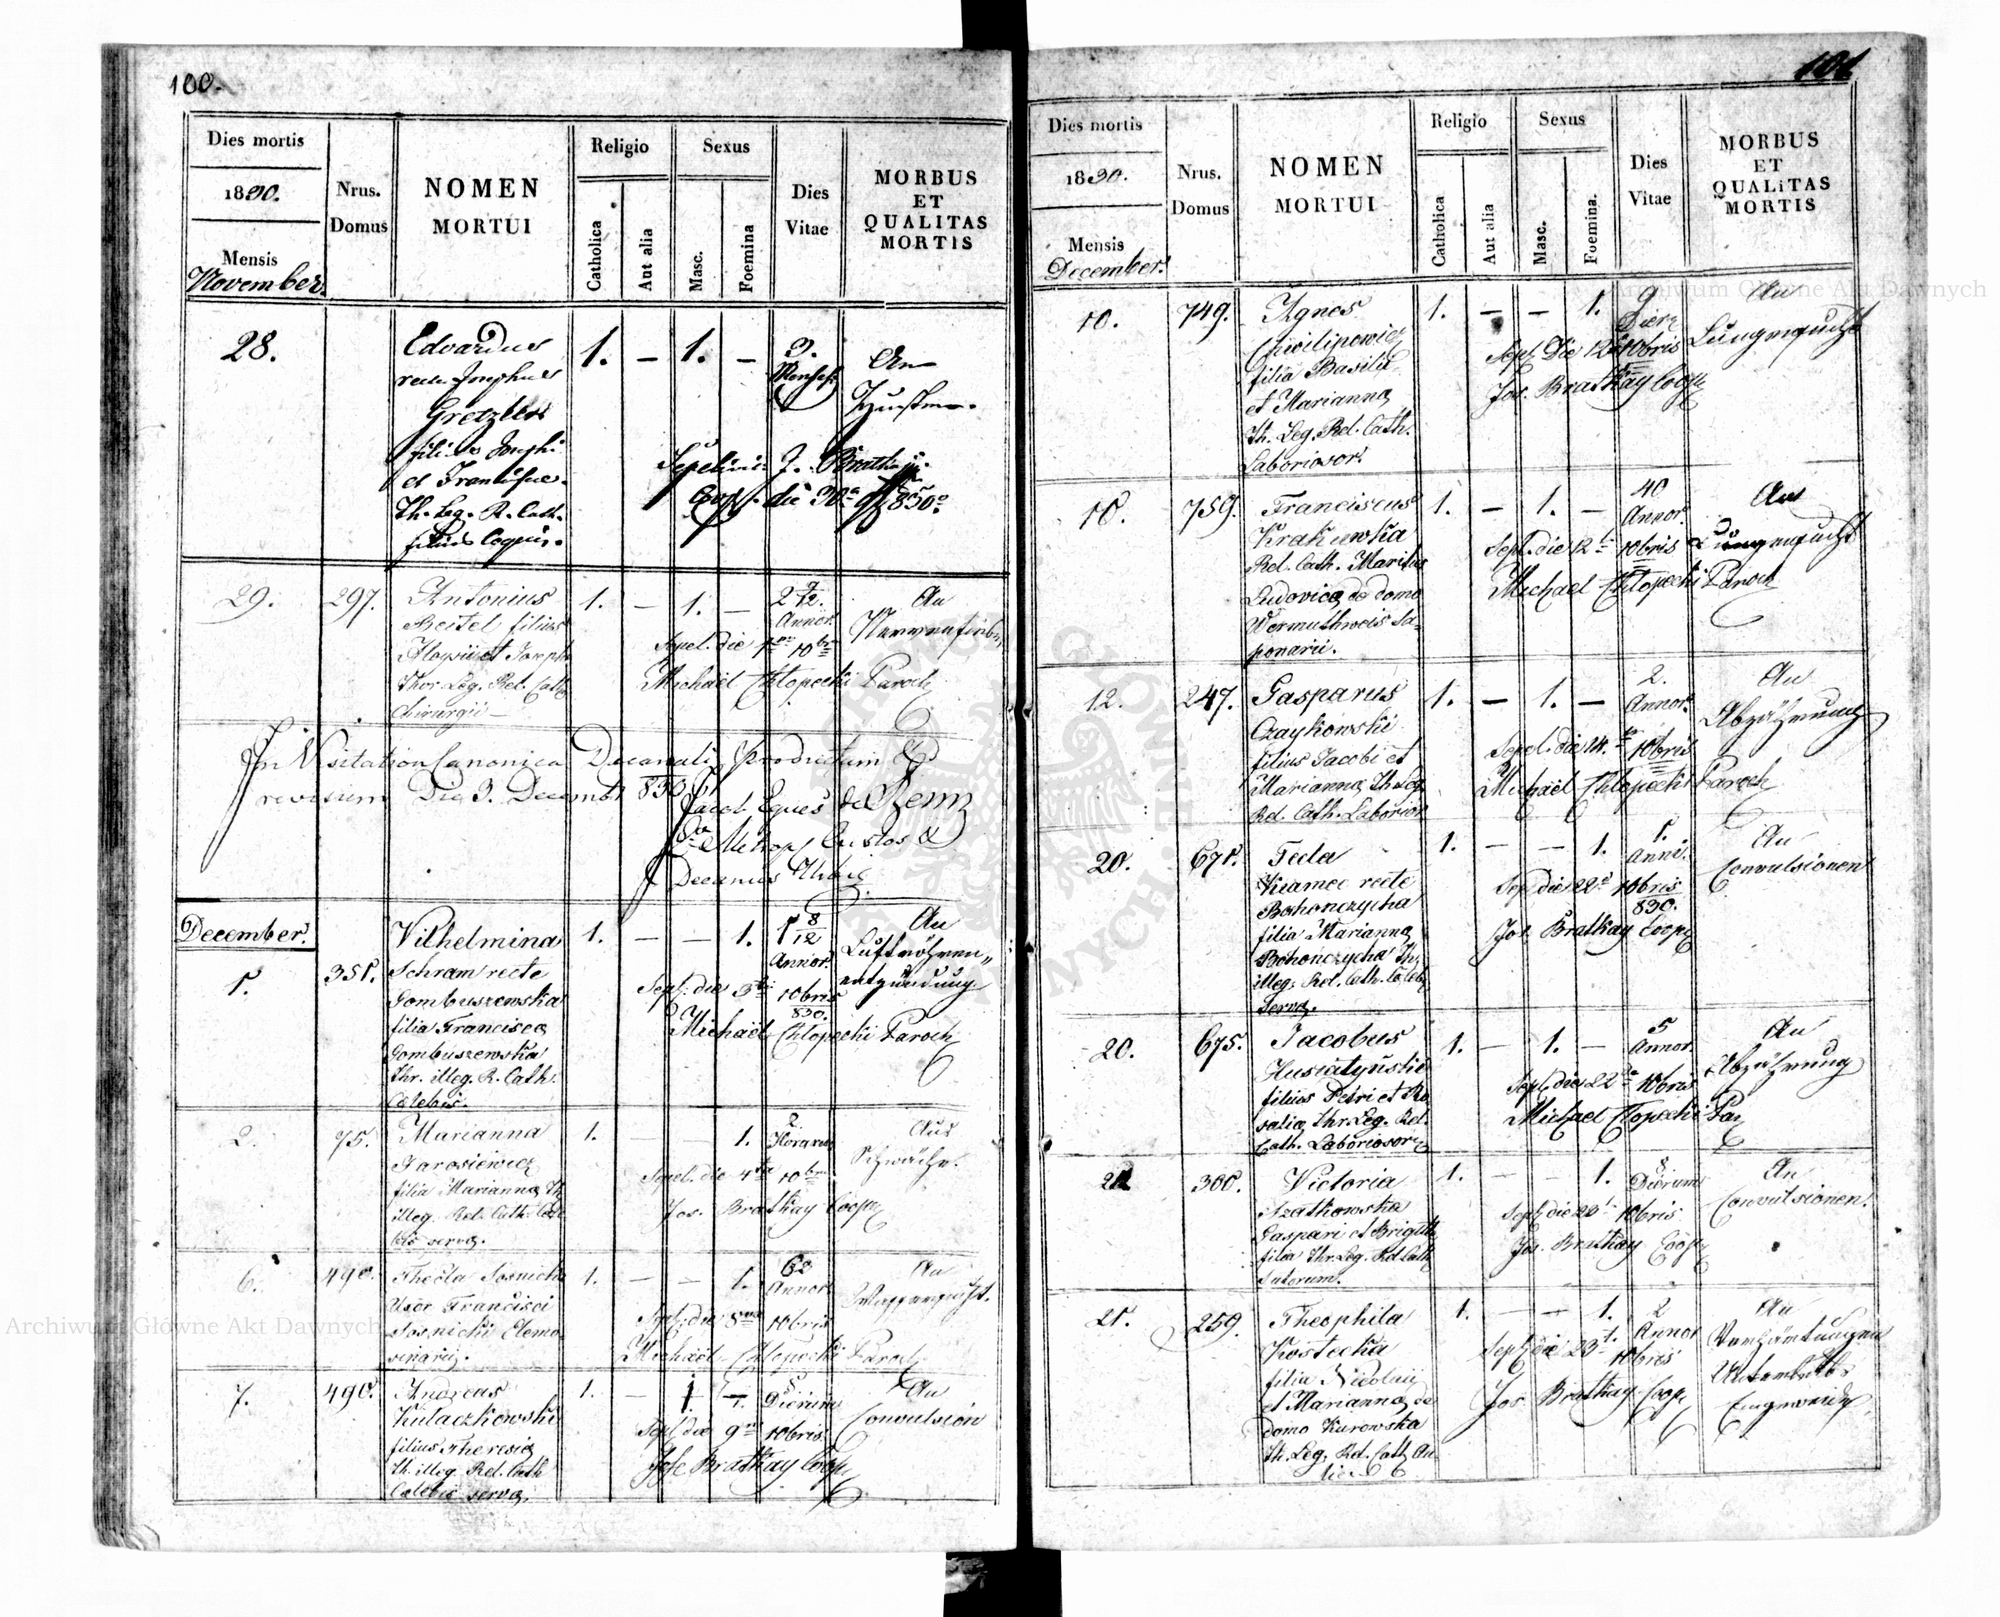 100.
Dies mortis
1830.
Mensis
November.
Nrus.
Domus
NOMEN
MORTUI
Religio
Catholica
Aut alia
Sexus
Masc.
Foemina
Dies
Vitae
MORBUS
ET
QUALITAS
MORTIS
28.
Edvardus
recte Josephus
filius Josephi
et Franciscae
Th. Leg. R. Cath.
1. — 1. —
3.
Mensch
An
Sepelivi J. Brathay
Coop. die 30a 9/850
29.
297.
Antonius
Beitel filius
Aloysii et Joseph
Thor. Leg. Rel. Cath
Chirurgii
1. — 1. —
2 7/12.
Annor.
An
Nervenfieber
Sepel. die 1ma 10bris
Michaël Chłopecki Paroch
In Visitatione Canonica Decanali productum et
revisum Die 3. Decembr 830
Jacob Eques de
Metrop Custos et
Decanus Urbis
December.
1.
351.
Vilhelmina
Schram recte
Gombuszewska
filia Francisca
Gombuszewska
Thr. illeg. R. Cath.
Caelebis.
1. — — 1.
1 8/12
Annor.
An
Luftröhren„
entzündung
Sepel. die 3tia 10bris
830.
Michaël Chłopecki Paroch
2.
75.
Marianna
Jarosiewicz
filia Marianna Th.
illeg. Rel. Cath. Cae
lebis serva.
1. — — 1.
2
Horarum
Aus
Schwäche.
Sepel. die 4ta 10bris
Jos. Brathay Coop
6.
490.
Thecla Sosnicka
Uxor Francisci
Sosnicki Elemo
sinarii.
1. — — 1.
60
Annor.
An
Wassersucht.
Sepel. die 8va 10bris
Michaël Chłopecki Paroch
7.
490.
Andreas
Kulaczkowski
filius Theresia
Th. illeg. Rel. Cath
Caelebis serva.
1. — 1. —
8
Dierum
An
Convulsion
Sepel. die 9na 10bris.
Jose Brathay Coop.
101.
Dies mortis
1830.
Mensis
December.
Nrus.
Domus
NOMEN
MORTUI
Religio
Catholica
Aut alia
Sexus
Masc.
Foemina.
Dies
Vitae
MORBUS
ET
QUALITAS
MORTIS
10.
749.
Agnes
Chwilipowicz
filia Basilii
et Marianna
Th. Leg. Rel. Cath.
Laboriosor.
1. — — 1.
9
Dier.
An
Lungensucht
Sepel. Die 12a 10bris
Jos. Brathay Coop
10.
759.
Franciscus
Krakiewska
Rel. Cath. Maritus
Ludovica de domo
Wermuthweis Sa-
ponarii.
1. — 1. —
40
Annor.
An
Lungensucht
Sepel. die 12a 10bris
Michael Chłopecki Paroch
12.
247.
Gasparus
Czaykowski
filius Jacobi et
Marianna Th. Leg
Rel. Cath. Laborior
1. — 1. —
2.
Annor.
An
Abzährung
Sepel. die 14. 10bris
Michaël Chłopecki Paroch
20.
671.
Tecla
Kramec recte
Bohonczycha
filia Marianna
Bohonczycha Th.
illeg. Rel. Cath. Caeleb
Serva.
1. — — 1.
1.
Anni.
An
Convulsionen
Sepel. die 22a 10bris
830.
Jos. Brathay Coop
20.
675.
Jacobus
Husiatyński
filius Petri et Ro
salia Thr. Leg. Rel.
Cath. Laboriosor
1. — 1. —
5
Annor.
An
Abzährung
Sepel. die 22a 10bris
Michael Chłopecki Par
21
300.
Victoria
Szatkowska
Gaspari et Brigitta
filia Thr. Leg. Rel. Cath
Sutorum.
1. — — 1.
8
Dierum
An
Convulsionen.
Sepel. die 23 10bris
Jos. Brathay Coop
21.
259.
Theophila
Kostecka
filia Nicolai
et Marianna de
domo Kurowska
Th. Leg. Rel. Cath
1. — — 1.
2
Annor
An
Unterleibs
Eingeweide.
Sepel. die 23t. 10bris
Jos. Brathay Coop
Archiwum Główne Akt Dawnych
Archiwum Główne Akt Dawnych